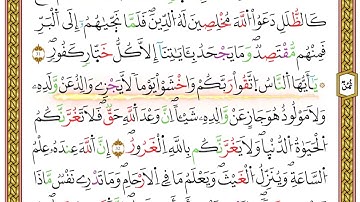 كَٱلظُّلَلِ دَعَوُا۟ ٱللَّهَ مُخْلِصِينَ لَهُ ٱلدِّينَ فَلَمَّا نَجَّىٰهُمْ إِلَى ٱلْبَرِّ
فَمِنْهُم مُّقْتَصِدٌ وَمَا يَجْحَدُ بِـَٔايَٰتِنَآ إِلَّا كُلُّ خَتَّارٍ كَفُورٍ ٣٢
يَٰٓأَيُّهَا ٱلنَّاسُ ٱتَّقُوا۟ رَبَّكُمْ وَٱخْشَوْا۟ يَوْمًا لَّا يَجْزِى وَالِدٌ عَن وَلَدِهِۦ
وَلَا مَوْلُودٌ هُوَ جَازٍ عَن وَالِدِهِۦ شَيْـًٔا إِنَّ وَعْدَ ٱللَّهِ حَقٌّ فَلَا تَغُرَّنَّكُمُ
ٱلْحَيَوٰةُ ٱلدُّنْيَا وَلَا يَغُرَّنَّكُم بِٱللَّهِ ٱلْغَرُورُ ٣٣ إِنَّ ٱللَّهَ عِندَهُۥ عِلْمُ
ٱلسَّاعَةِ وَيُنَزِّلُ ٱلْغَيْثَ وَيَعْلَمُ مَا فِى ٱلْأَرْحَامِ وَمَا تَدْرِى نَفْسٌ مَّاذَا